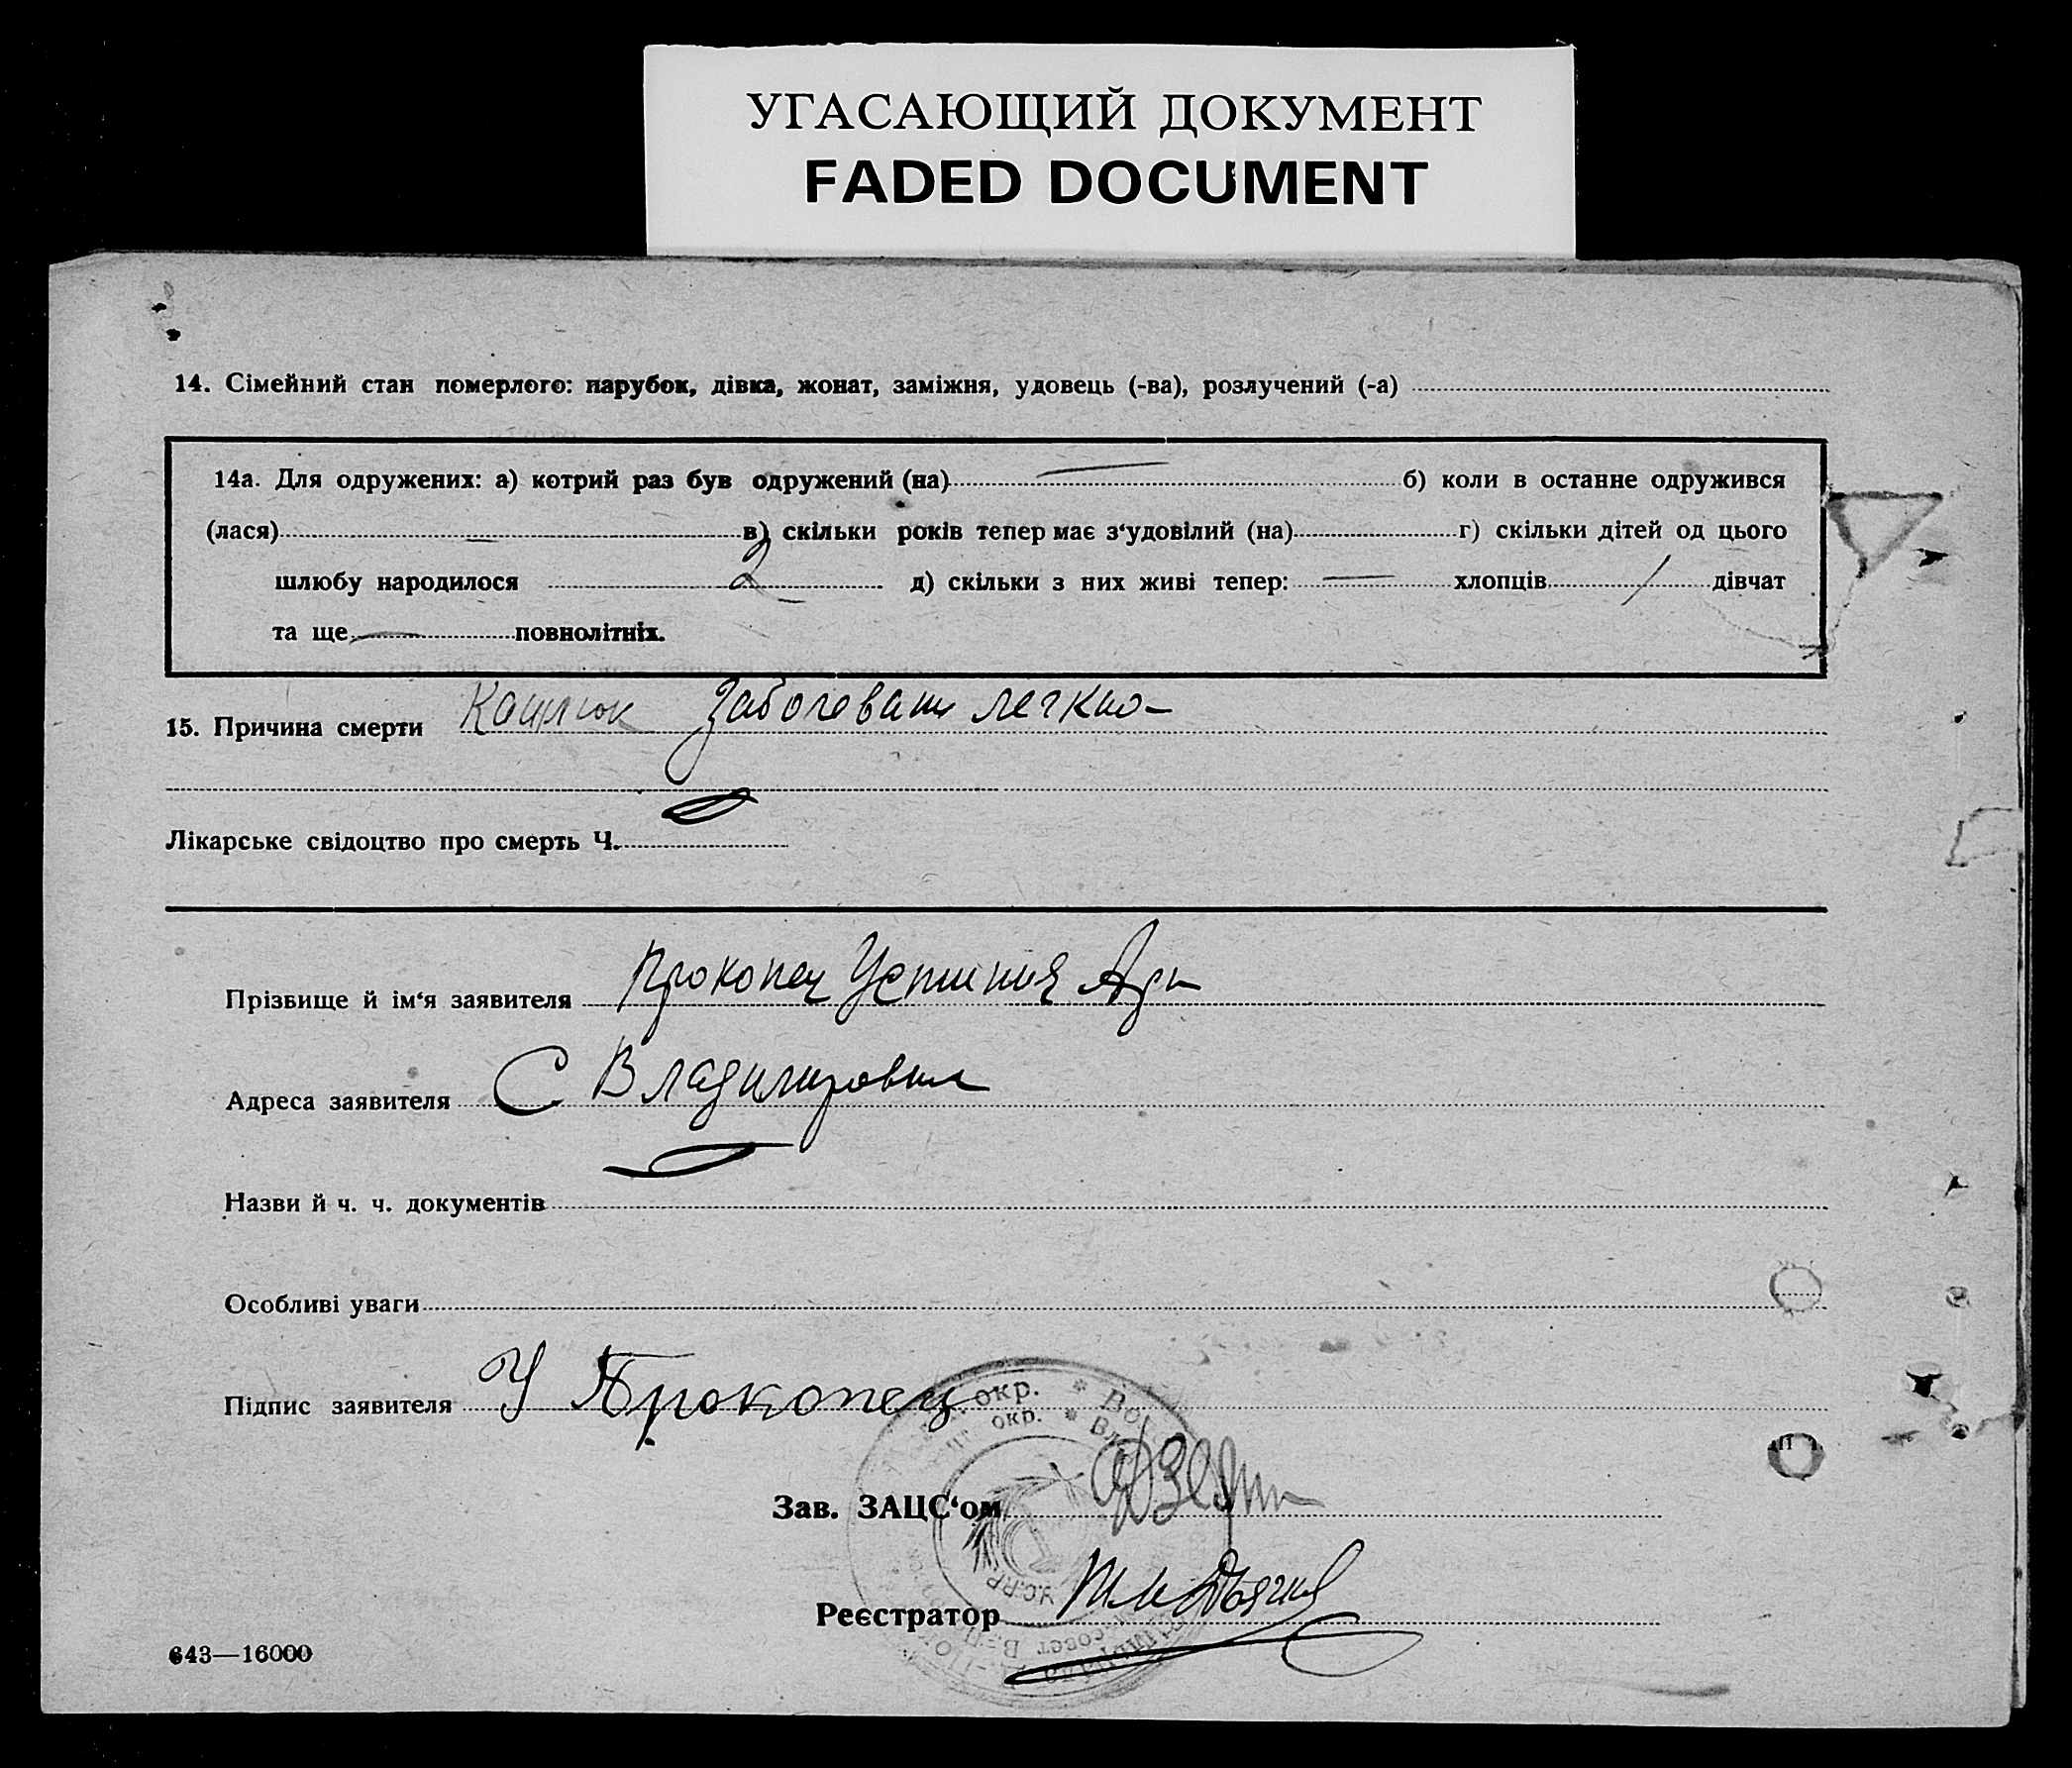 УГАСАЮЩИЙ ДОКУМЕНТ
FADED DOCUMENT
14. Сімейний стан померлого: парубок, дівка, жонат, заміжня, удовець (-ва), розлучений (-а)
14а. Для одружених: а) котрий раз був одружений (на) — б) коли в останне одружився
(лася) — в) скільки років тепер має з‘удовілий (на) г) скільки дітей од цього
шлюбу народилося 2 д) скільки з них живі тепер: — хлопців 1 дівчат
та ще — повнолітніх.
15. Причина смерти Кашлюк Заболевани легкио-
Лікарське свідоцтво про смерть Ч.
Прізвище й ім‘я заявителя Прокопец Устиния
Адреса заявителя С Владимировка
Назви й ч. ч. документів
Особливі уваги
Підпис заявителя У Прокопец
окр.
окр.
Зав. ЗАЦС‘ом
У.С.Р.Р.
Реєстратор
643—16000